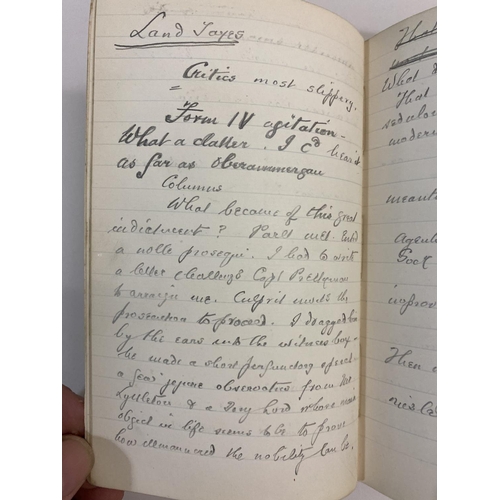 Land Taxes
Critics most slippery.
Form IV agitation -
What a clatter. I cd hear it
as far as Oberammergau
Columns
What became of this great
indictment? Parlt met. Entd
a nolle prosequi. I had to write
a letter challengg Capt Pretyman
to arraign me. Culprit invites the
prosecution to proceed. I dragged him
by the ears into the witness box -
he made a short perfunctory speech
a few jejune observations from Mr
Lyttelton & a Tory Lord whose main
object in life seems to be to prove
how demannered the nobility can be.
That
What
That
modern
meant
Agent
Gock
improv
Then